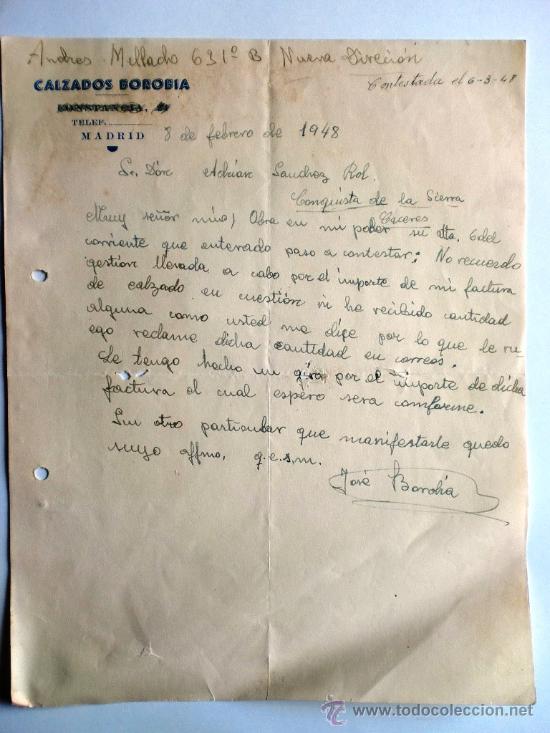 Andres Mellado 63 1º B Nueva Direción
CALZADOS BOROBIA
CONSTANCIA,
Contestada el 6-3-48
TELEF.
MADRID 8 de febrero de 1948
Sr. Don Adrián Sanchez Rol.
Conquista de la Sierra
Caceres
Muy señor mio; Obra en mi poder su atta. 6 del
corriente que enterado paso a contestar: No recuerdo
gestión llevada a cabo por el importe de mi factura
de calzado en cuestión ni he recibido cantidad
alguna como usted me dice por lo que le ru
ego reclame dicha cantidad en correos.
Le tengo hecho un giro por el importe de dicha
factura el cual espero sera comforme.
Sin otro particular que manifestarle quedo
suyo affmo. q.e.s.m.
José Borobia
todocoleccion
www.todocoleccion.net